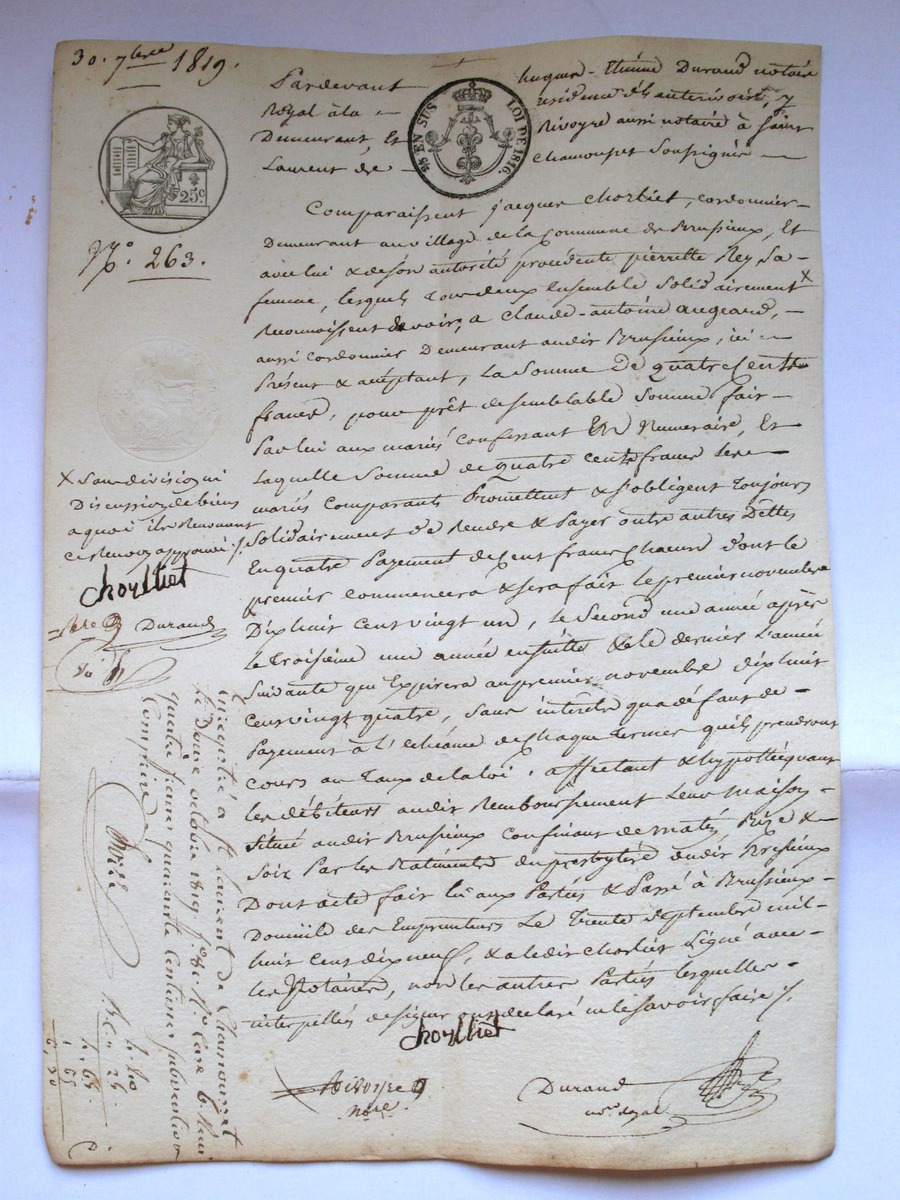 30. 7bre 1819.
Pardevant hugues-Etienne Durand notaire
Royal à la résidence de St anterivoire, y
Demeurant, Et Rivoyre aussi notaire à saint
Laurent de Chamousset Soussignés
98 EN SUS LOI DE 1816.
25c
N.º 263.
Comparaissent jacques Chorliet, cordonnier
Demeurant au village de la Commune de Brusieux, Et
avec lui & de son autorité procédente pierrette Rey Sa
femme, lesquels tous deux Ensemble Solidairement X
Reconnoissent devoir, a Claude-antoine augeard,
aussi Cordonnier Demeurant audit Brusieux, ici
Présent & acceptant, la Somme De quatre Cents
francs, pour prêt de semblable Somme fait
Par lui aux mariés confessant En Numeraire, Et
laquelle Somme de quatre cents francs les
mariés Comparants Promettent & S'obligent Toujours
Solidairement de Rendre & Payer outre autres Dettes
En quatre Payement de Cent francs Chacun dont le
premier Commencera & sera fait le premier novembre
Dix huit Cent vingt un, le Second une année après
le troisième une année ensuite & le dernier l'année
Suivante qui Expirera au premier novembre dix huit
Cent vingt quatre, Sans interets qu'a défaut de
Payement à l'échéance de Chaque terme qu'ils prendront
Cours au Taux de la loi. affectant & hypothéquant
les débiteurs audit Remboursement Leur Maison
Située audit Brusieux Confinant de matin, Bize &
Soir Par les Batiments du presbytère dudit Brusieux
Dont acte fait lu aux Parties & Passé à Brussieux
Domicile des Emprunteurs Le Trente Septembre mil
huit Cent dix neuf, & a ledit Chorliet Signé avec
les Notaires, non les autres Parties lesquelles
interpellés de signer ont déclaré ne le savoir faire /.
Choylliet
Rivoyre
nore.
Durand
nore. Royal
X Sans division ni
Discussion de biens
a quoi ils Renoncent
ce Renvoy approuvé /.
Choylliet
Durand
Enregistré à St Laurent de Chamousset
le Douze octobre 1819 fo.
quatre francs quarante centimes subvention
Comprise